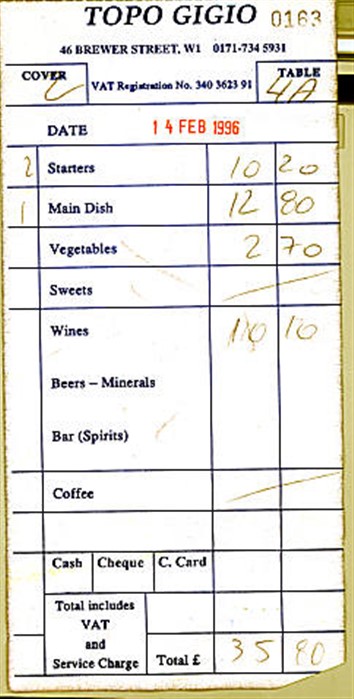 TOPO GIGIO 0163
46 BREWER STREET, W1 0171-734 5931
COVER 2
VAT Registration No. 340 3623 91
TABLE 4A
DATE 14 FEB 1996
2 Starters 10 20
1 Main Dish 12 80
Vegetables 2 70
Sweets
Wines 10 10
Beers – Minerals
Bar (Spirits)
Coffee
Cash Cheque C. Card
Total includes
VAT
and
Service Charge Total £ 35 80